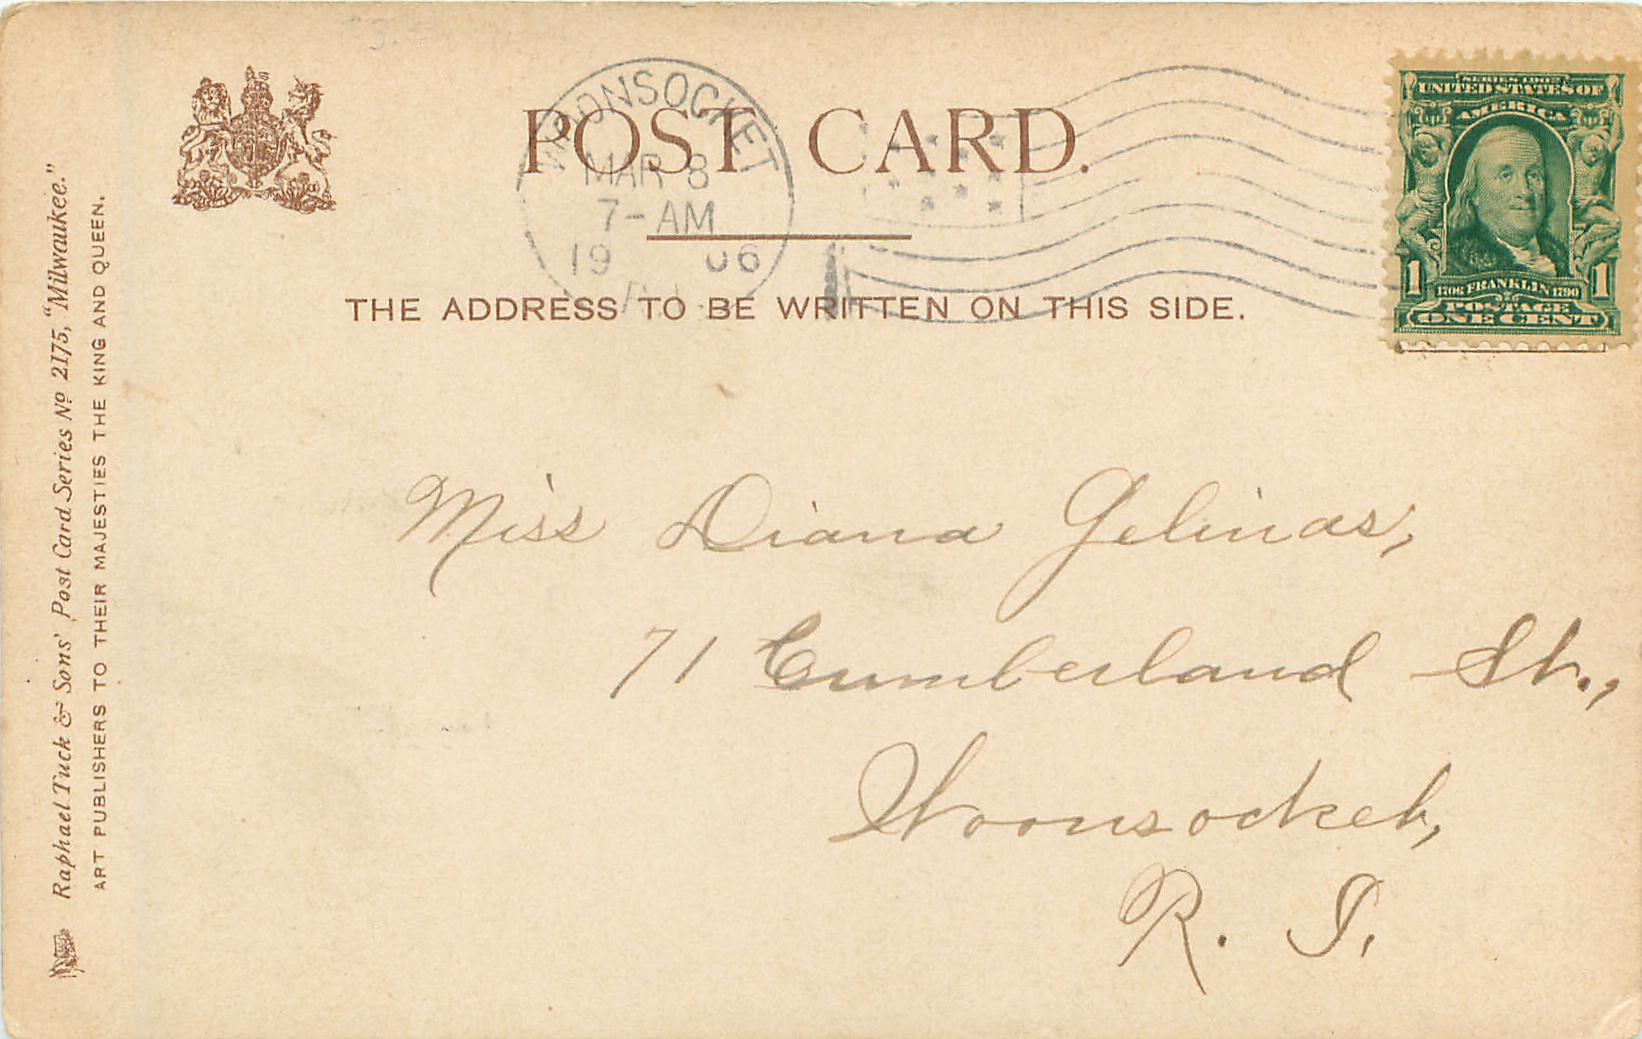 POST CARD.
WOONSOCKET
MAR 8
7-AM
1906
THE ADDRESS TO BE WRITTEN ON THIS SIDE.
SERIES 1902
UNITED STATES OF
AMERICA
1 1
1706 FRANKLIN 1790
POSTAGE
ONE CENT
Miss Diana Gelinas,
71 Cumberland St.,
Woonsocket,
R. I.
Raphael Tuck & Sons' Post Card Series No 2175, "Milwaukee."
ART PUBLISHERS TO THEIR MAJESTIES THE KING AND QUEEN.